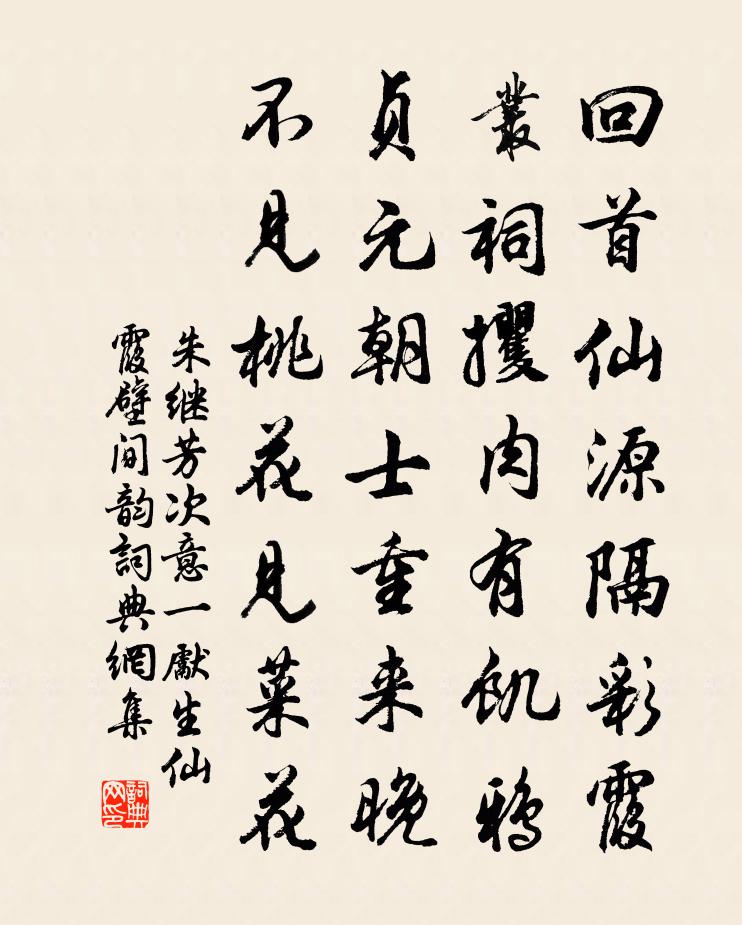 回首仙源隔彩霞
叢祠攫肉有飢鴉
貞元朝士重来晚
不見桃花見菜花
朱继芳次意一獻生仙
霞壁间韵詞典網集
詞典网印